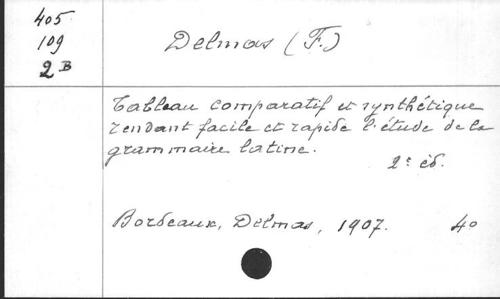 405
109
2 B
Delmas (F.)
Tableau comparatif et synthétique
rendant facile et rapide l'étude de la
grammaire latine.
2e éd.
Bordeaux, Delmas, 1907. 4o